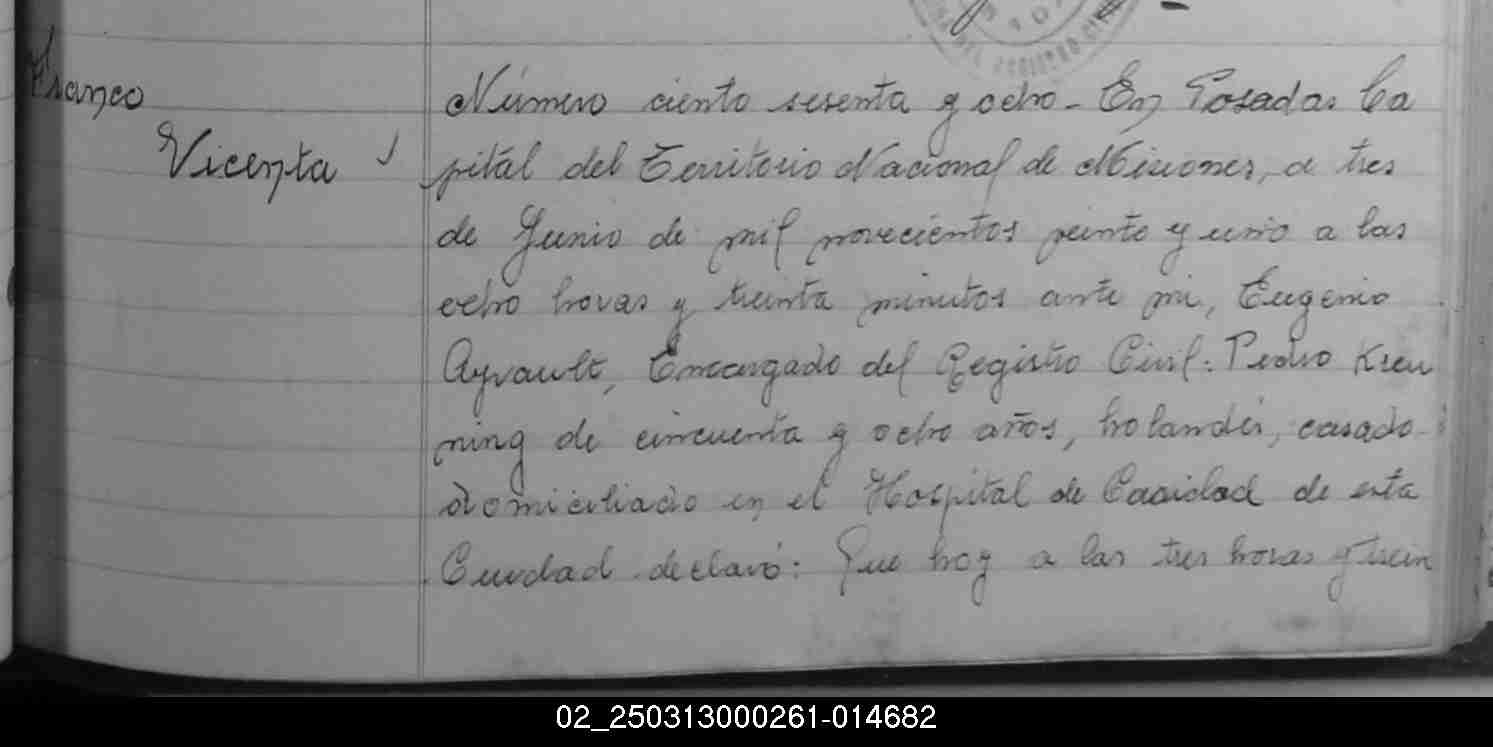 Franco
Vicenta
Número ciento sesenta y ocho - En Posadas Ca
pital del Territorio Nacional de Misiones, a tres
de Junio de mil novecientos veinte y uno a las
ocho horas y treinta minutos ante mi, Eugenio
Ayrault, Encargado del Registro Civil: Pedro Kreu
ning de cincuenta y ocho años, holandés, casado
domiciliado en el Hospital de Caridad de esta
Ciudad declaró: Que hoy a las tres horas y trein
02_250313000261-014682